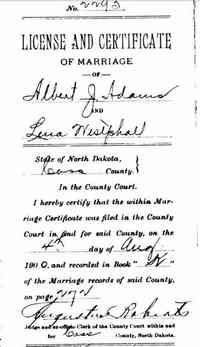 No. 2293
LICENSE AND CERTIFICATE
OF MARRIAGE
—OF—
Albert J. Adams
AND
Lena Westphall
State of North Dakota,
Cass County.
In the County Court.
I hereby certify that the within Mar-
riage Certificate was filed in the County
Court in and for said County, on the
4th day of Aug
1900, and recorded in Book "K"
of the Marriage records of said County,
on page
Augustus Roberts
Judge and ex-officio Clerk of the County Court within and
for Cass County, North Dakota.